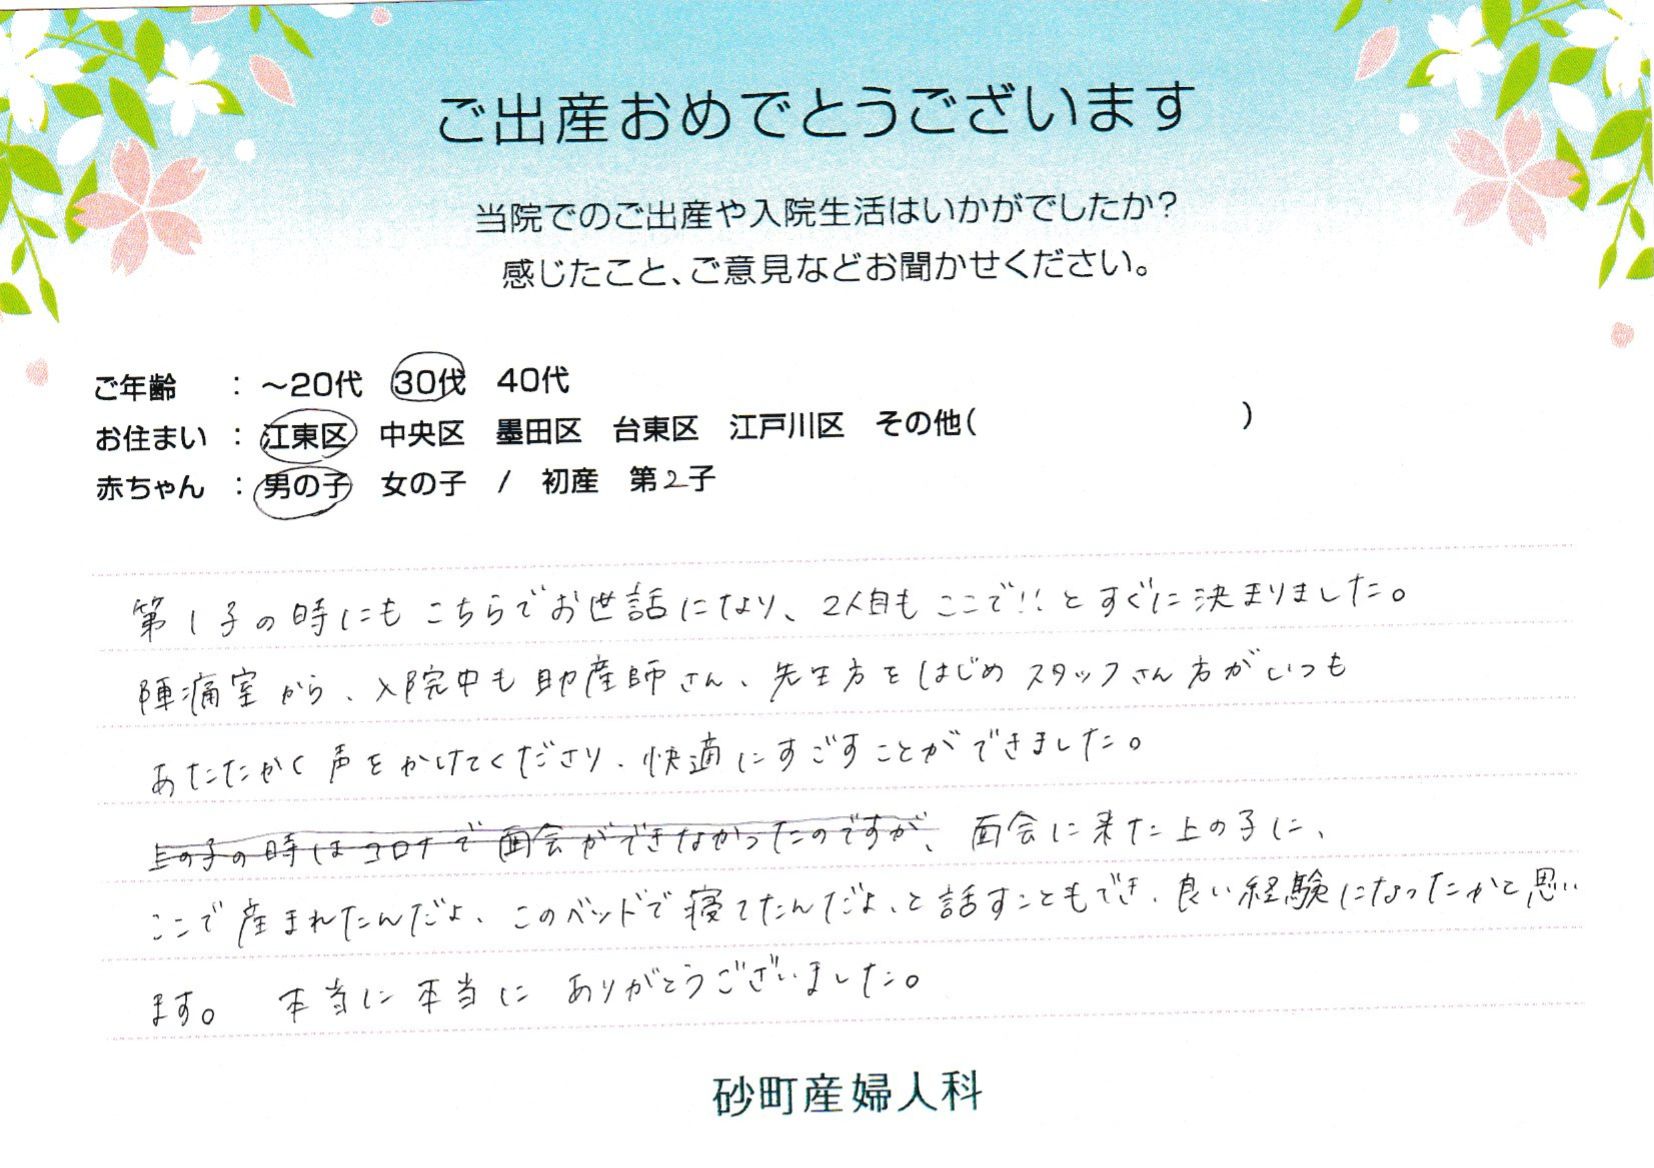 ご出産おめでとうございます
当院でのご出産や入院生活はいかがでしたか?
感じたこと、ご意見などお聞かせください。
ご年齢 : ～20代 30代 40代
お住まい : 江東区 中央区 墨田区 台東区 江戸川区 その他( )
赤ちゃん : 男の子 女の子 / 初産 第2子
第1子の時にもこちらでお世話になり、2人目もここで!!とすぐに決まりました。
陣痛室から、入院中も助産師さん、先生方をはじめスタッフさん方がいつも
あたたかく声をかけてくださり、快適にすごすことができました。
上の子の時はコロナで面会ができなかったのですが、面会に来た上の子に、
ここで産まれたんだよ、このベッドで寝てたんだよ、と話すこともでき、良い経験になったかと思い
ます。 本当に本当に ありがとうございました。
砂町産婦人科